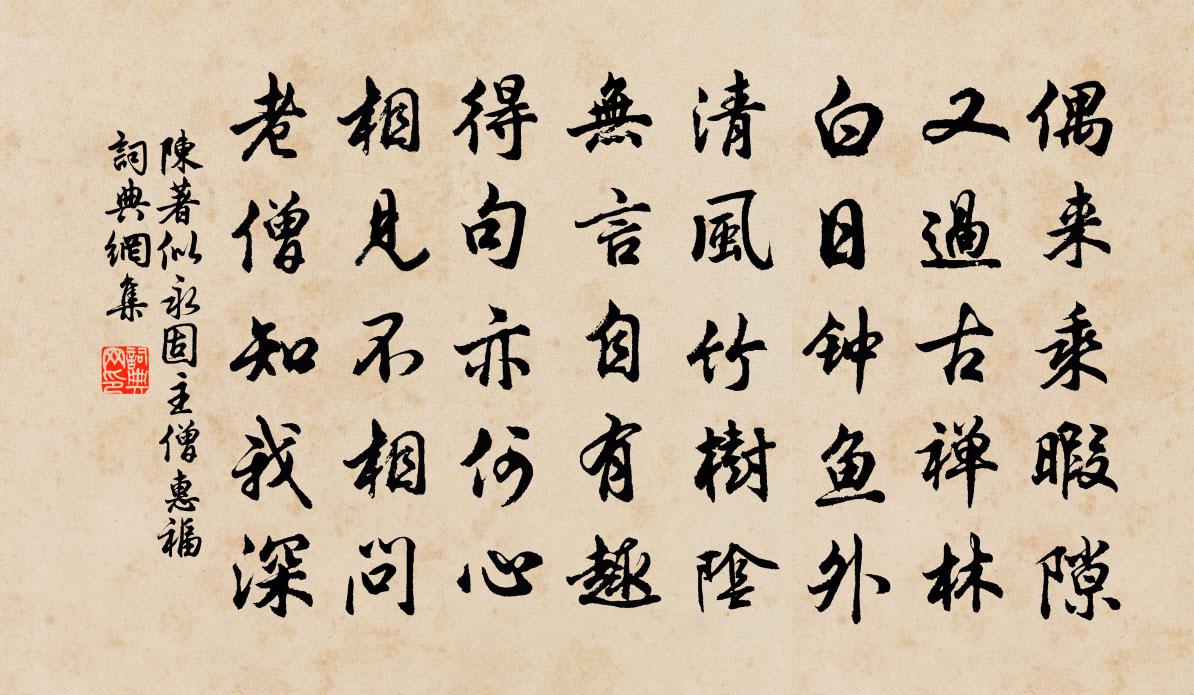 偶来乘暇隙
又過古禅林
白日钟鱼外
清風竹樹陰
無言自有趣
得句亦何心
相見不相問
老僧知我深
陳著似永固主僧惠福
詞典網集
詞典網印